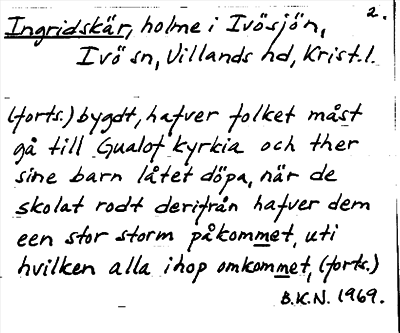 2.
Ingridskär, holme i Ivösjön,
Ivö sn, Villands hd, Krist. l.
(forts.) bygdt, hafver folket måst
gå till Gualof kyrkia och ther
sine barn låtet döpa, när de
skolat rodt derifrån hafver dem
een stor storm påkommet, uti
hvilken alla ihop omkommet, (forts.)
B.K.N. 1969.